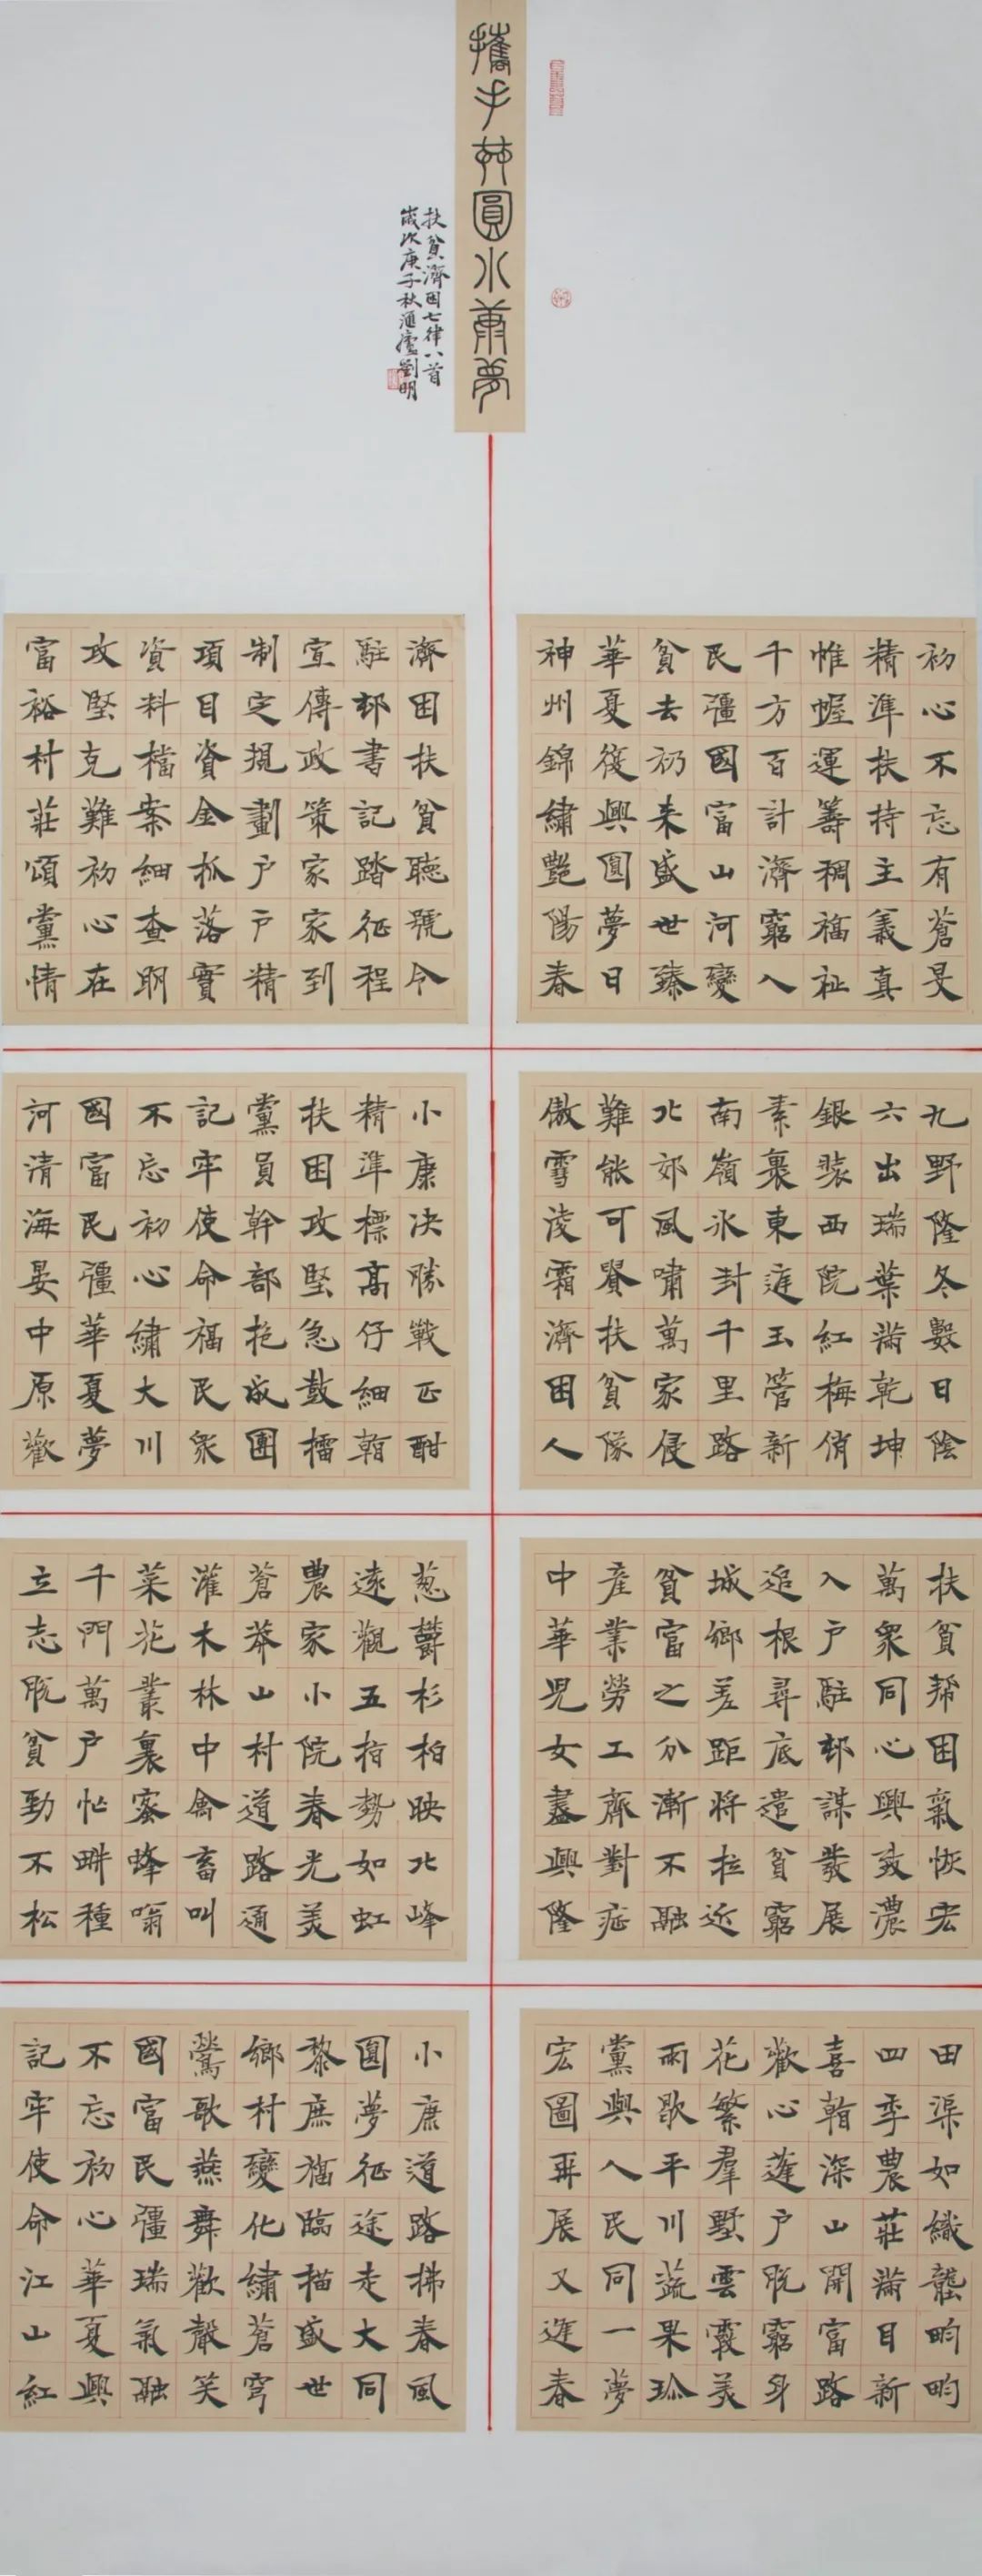 攜手共圓小康夢
扶貧濟困七律八首
歲次庚子秋滙廬劉明
初心不忘有蒼旻
精準扶持主義真
帷幄運籌稠福祉
千方百計濟窮人
民彊國富山河變
貧去礽来盛世臻
華夏復興圓夢日
神州錦繡艷陽春
濟困扶貧聽號令
駐邨書記踏征程
宣傳政策家家到
制定規劃户户精
項目資金抓落實
資料檔案細查明
攻堅克難初心在
富裕村莊頌黨情
九野隆冬數日陰
六出瑞葉滿乾坤
銀裝西院紅梅俏
素裹東莚玉管新
南嶺冰封千里路
北郊風嘯萬家侵
難能可貴扶貧隊
傲雪淩霜濟困人
小康决勝戰正酣
精準標高仔細翰
扶困攻堅急鼓擂
黨員幹部抱成團
記牢使命福民衆
不忘初心繡大川
國富民彊華夏夢
河清海晏中原歡
扶貧幫困氣恢宏
萬衆同心興致濃
入户駐邨謀發展
追根尋底遣貧窮
城鄉差距將拉近
貧富之分漸不融
產業勞工齊對症
中華兒女盡興隆
葱鬱杉柏映北峰
遠觀五指勢如虹
農家小院春光美
蒼莽山村道路通
灌木林中禽畜叫
菜花叢裏蜜蜂嗡
千門萬户忙耕種
立志脫貧勁不松
田渠如織壟畇畇
四季農莊滿目新
喜翰深山開富路
歡心蓬户脫窮身
花繁羣墅雲霞美
雨歇平川蔬果珍
黨與人民同一夢
宏圖再展又進春
小康道路拂春風
圓夢征途走大同
黎庶福臨描盛世
鄉村變化繡蒼穹
鶯歌燕舞歡聲笑
國富民彊瑞氣融
不忘初心華夏興
記牢使命江山紅